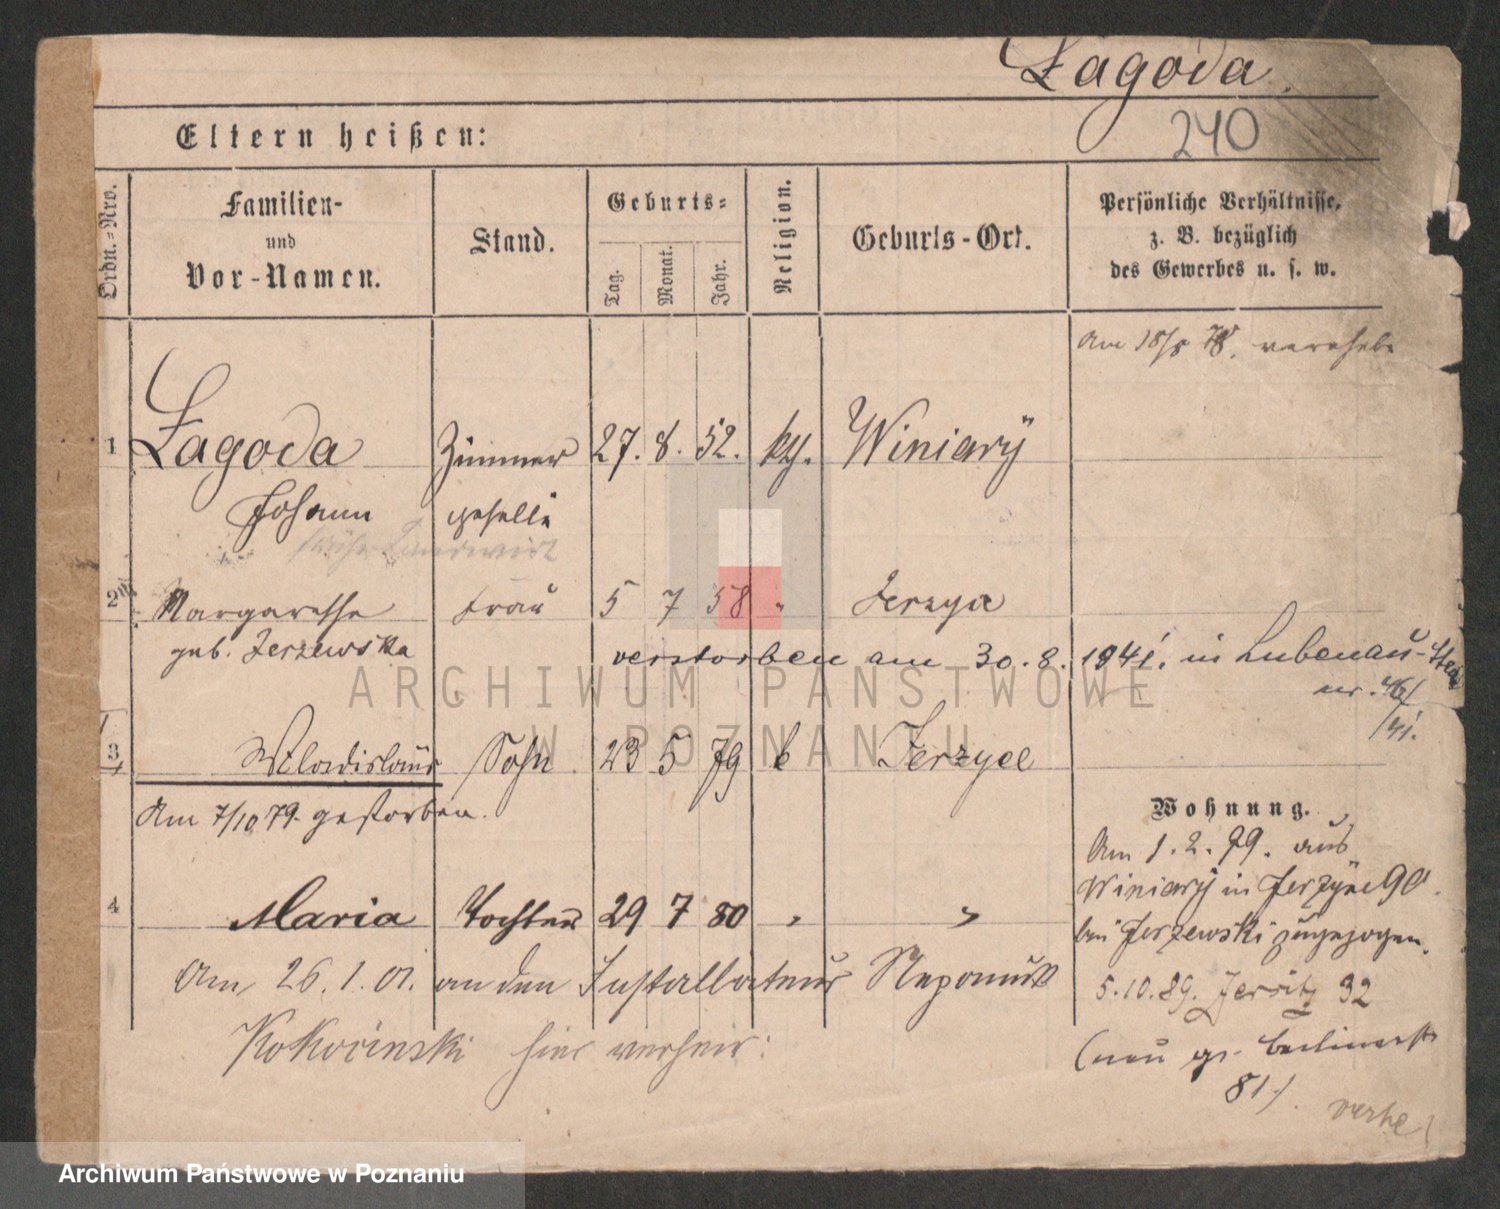 Łagoda.
240
Eltern heißen:
Ordn.=Nro.
Familien-
und
Vor-Namen.
Stand.
Geburts=
Tag.
Monat.
Jahr.
Religion.
Geburts-Ort.
Persönliche Verhältnisse,
z. B. bezüglich
des Gewerbes u. s. w.
Am 18/8 78. verehel.
1 Łagoda Zimmer 27. 8. 52. kth. Winiarÿ
Johann geselle
früher Landwirt
2 Margarethe Frau 5 7 58 " Jerzyce
geb. Jerzewska
verstorben am 30. 8. 1941. in Lubenau-
nr.
/41.
3 Wladislaus Sohn 23 5 79 k Jerzyce
Am 7/10 79. gestorben.
Wohnung.
Am 1. 2. 79. aus
Winiarÿ in Jerzyce 90.
bei Jerzewski zugezogen.
4 Maria Tochter 29 7 80 " "
Am 26. 1. 01. an den Installateur Nepomuk
Kokocinski hier verheir:
5.10.89. Jersitz 32
(neu gr. Berlinerstr
81)
verte
ARCHIWUM PAŃSTWOWE
W POZNANIU
Archiwum Państwowe w Poznaniu